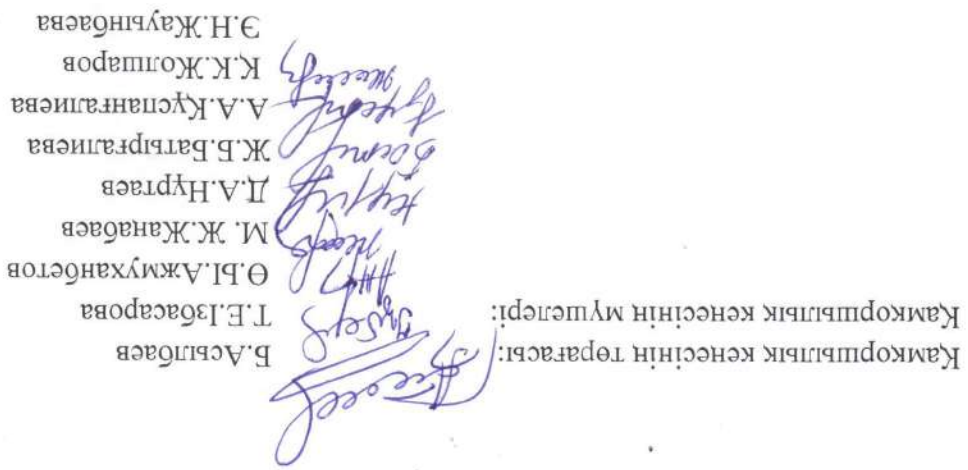 Қамқоршылық кеңесінің төрағасы: Б.Асылбаев
Қамқоршылық кеңесінің мүшелері: Т.Е.Ізбасарова
Ө.Ы.Ажмуханбетов
М. Ж.Жаңабаев
Д.А.Нұртаев
Ж.Б.Батырғалиева
А.А.Құспанғалиева
Қ.К.Жолшаров
Э.Н.Жауынбаева